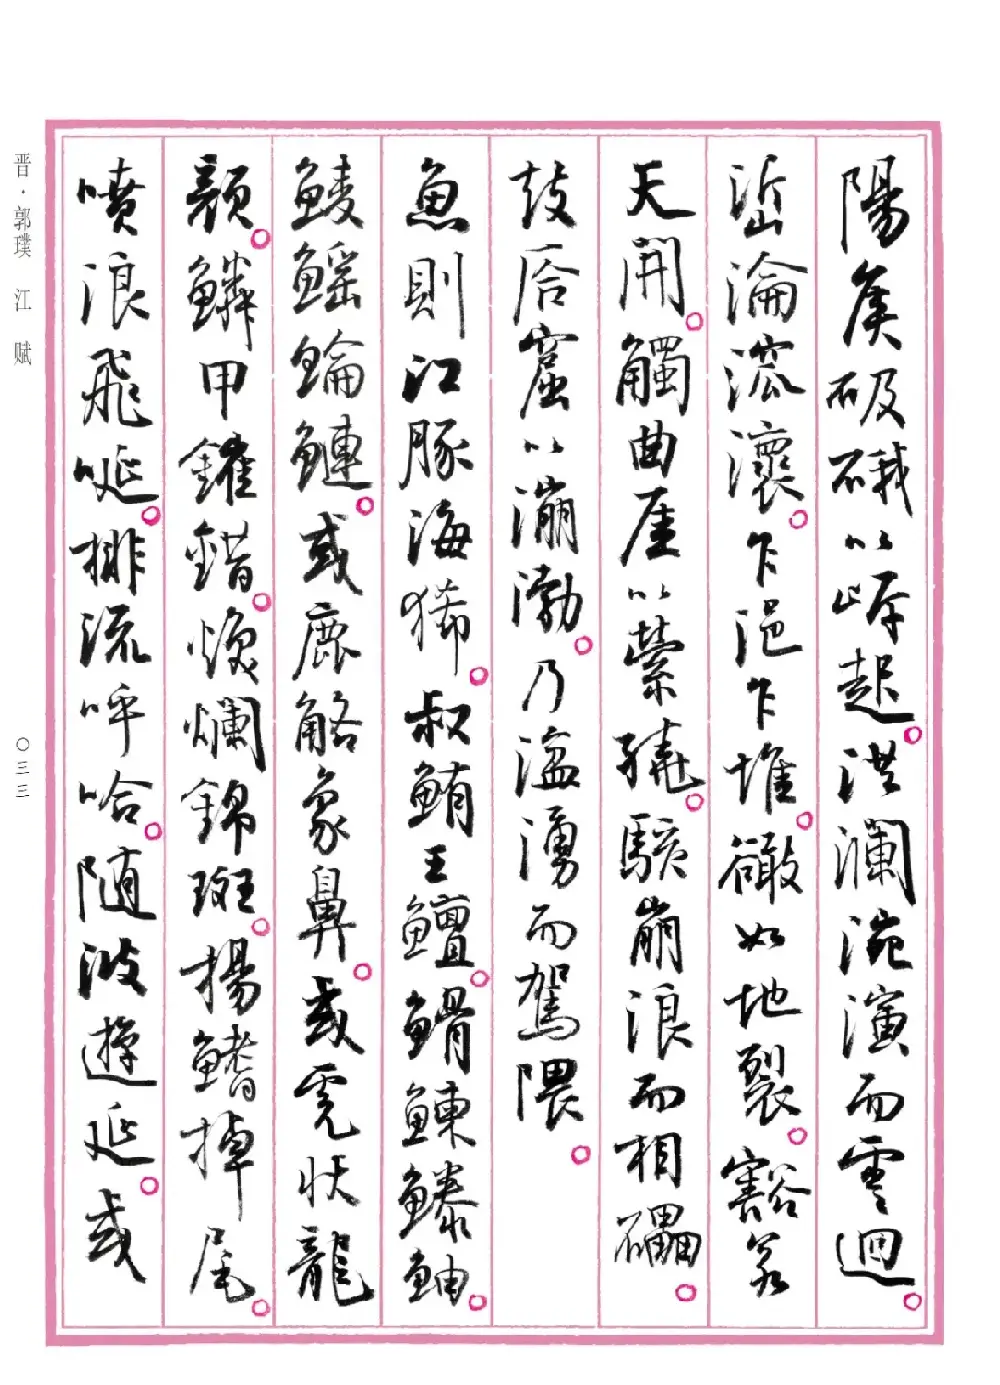 陽侯砐硪以岸起。洪瀾涴演而雲迴。
峾淪溛瀤。乍浥乍堆。豃如地裂。豁若
天開。觸曲厓以縈繞。駭崩浪而相礧。
鼓㕎窟以漰渤。乃湓湧而駕隈。
魚則江豚海狶。叔鮪王鱣。䱻鰊鰧鮋。
鯪鰩鯩鰱。或鹿觡象鼻。或虎狀龍
顏。鱗甲鏙錯。煥爛錦斑。揚鰭掉尾。
噴浪飛唌。排流呼哈。隨波遊延。或
晋·郭璞 江赋
〇三三